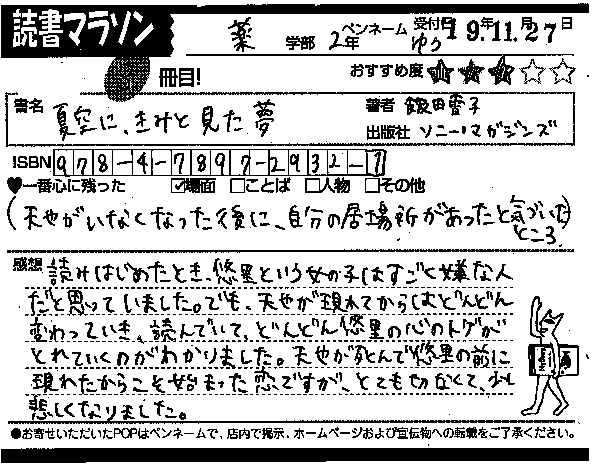 読書マラソン
薬 学部 2年 ペンネーム ゆう 受付日 19年11月27日
冊目! おすすめ度 ★★★☆☆
書名 夏空に、きみと見た夢 著者 飯田雪子
出版社 ソニー・マガジンズ
ISBN 978-4-7897-2932-1
♥一番心に残った ☑場面 □ことば □人物 □その他
(天也がいなくなった後に、自分の居場所があったと気づいた
ところ)
感想 読みはじめたとき、悠里という女の子はすごく嫌な人
だと思っていました。でも、天也が現れてからはどんどん
変わっていき、読んでいて、どんどん悠里の心のトゲが
とれていくのがわかりました。天也が死んで悠里の前に
現れたからこそ始まった恋ですが、とても切なくて、少し
悲しくなりました。
●お寄せいただいたPOPはペンネームで、店内で掲示、ホームページおよび宣伝物への転載をご了承ください。